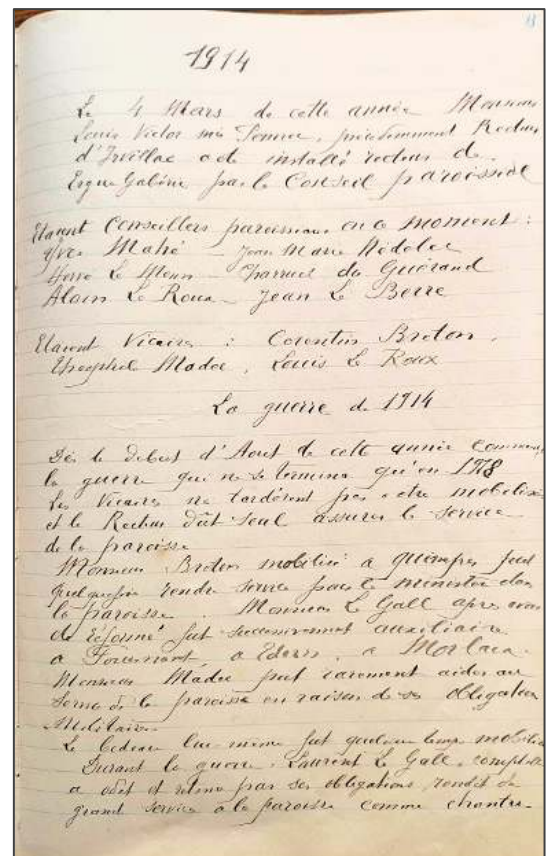 1914
Le 4 Mars de cette année Monsieur
Louis Victor Pennec, précédemment Recteur
d'Irvillac a été installé recteur de
Ergué Gabéric par le Conseil paroissial
Etaient Conseillers paroissiaux en ce moment :
Yves Mahé - Jean Marie Nédelec
Hervé Le Menn - Charruel du Guérand
Alain Le Roux - Jean Le Berre
Etaient Vicaires : Corentin Breton,
Théophile Madec, Louis Le Roux
La guerre de 1914
Dès le début d'Aout de cette année commença
la guerre qui ne se termina qu'en 1918
Les Vicaires ne tardèrent pas a etre mobilisés
et le Recteur dût seul assurer le service
de la paroisse
Monsieur Breton mobilisé a Quimper put
quelquefois rendre service pour le ministère dans
la paroisse Monsieur Le Gall après avoir
été réformé fut successivement auxiliaire
a Fouesnant, a Edern, a Morlaix.
Monsieur Madec put rarement aider au
service de la paroisse en raison de ses obligations
Militaires
Le bedeau lui même fut quelque temps mobilisé
Durant la guerre, Laurent Le Gall,
a et retenu par ses obligations rendit de
grand service a la paroisse comme chantre